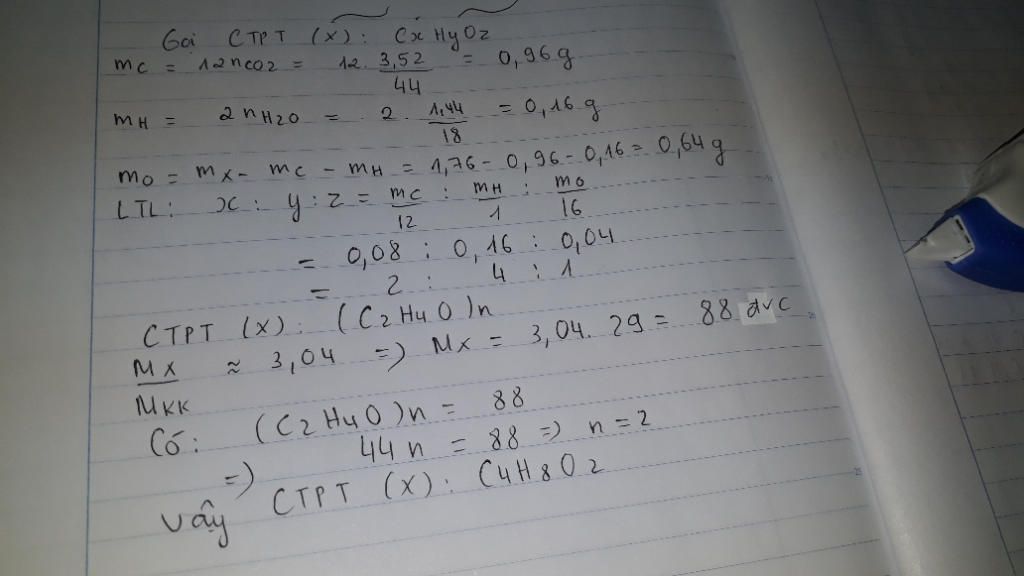 Gọi CTPT (X): CxHyOz
mC = 12nCO2 = 12. 3,52/44 = 0,96g
mH = 2nH2O = 2. 1,44/18 = 0,16g
mO = mX - mC - mH = 1,76 - 0,96 - 0,16 = 0,64g
LTL: x : y : z = mC/12 : mH/1 : mO/16
= 0,08 : 0,16 : 0,04
= 2 : 4 : 1
CTPT (X): (C2H4O)n
MX/MKK ≈ 3,04 => MX = 3,04. 29 = 88 đvC
Có: (C2H4O)n = 88
=> 44n = 88 => n = 2
Vậy CTPT (X): C4H8O2